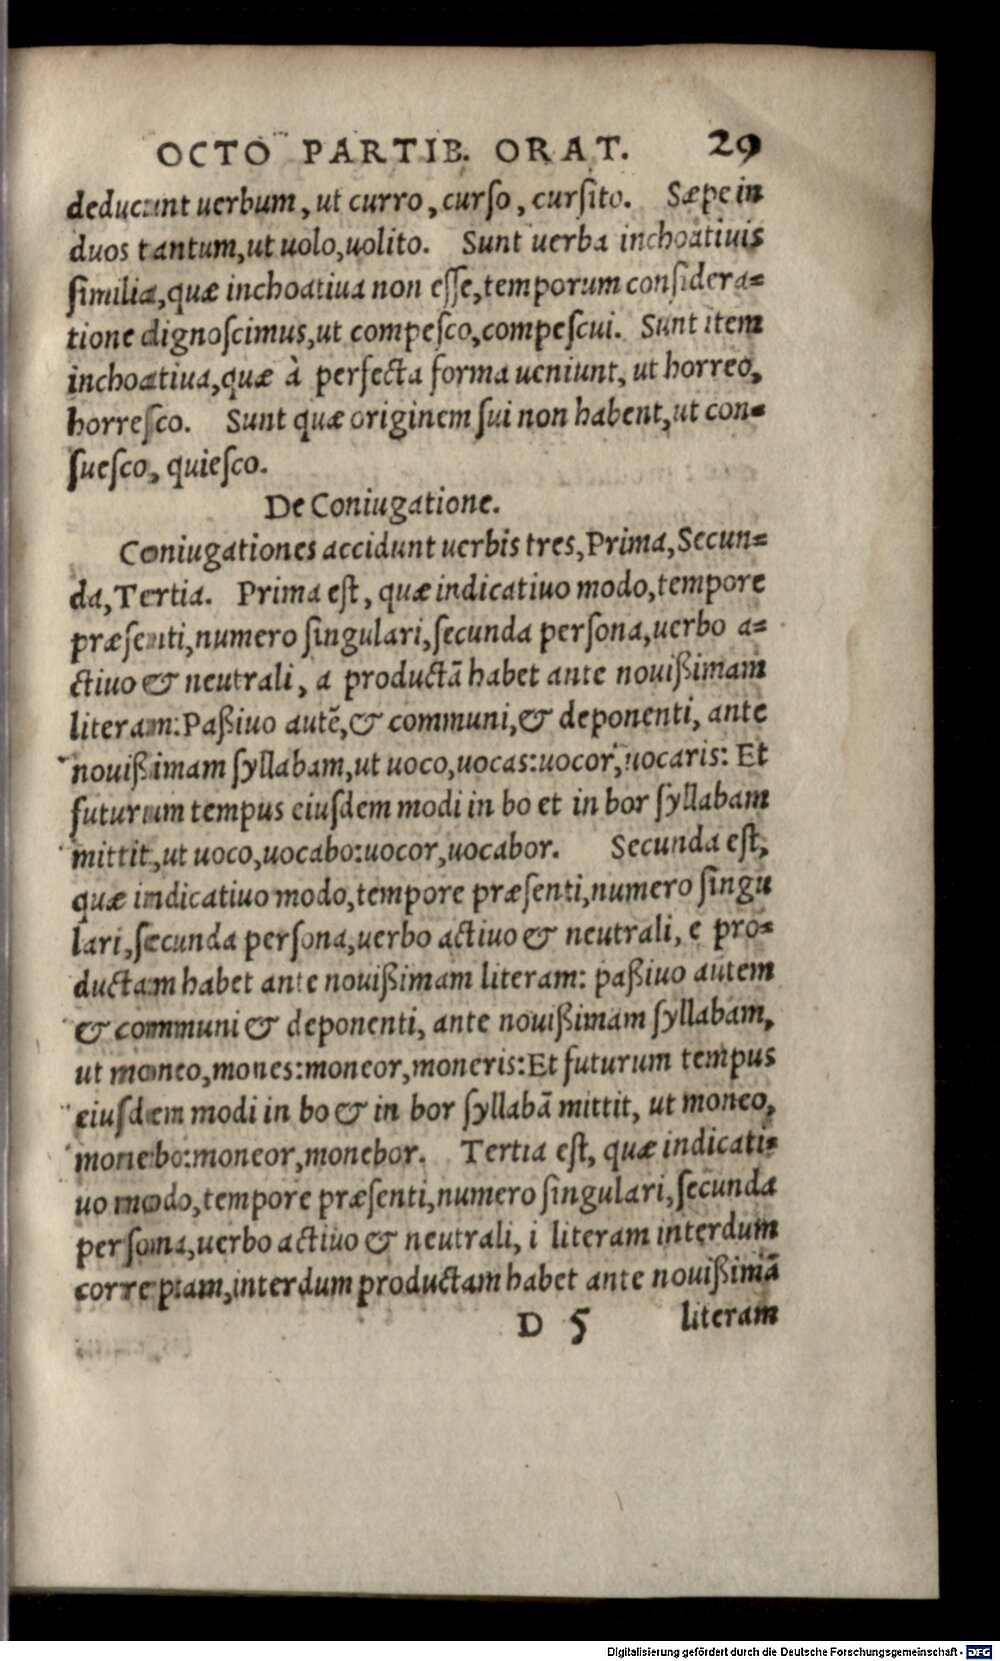 OCTO PARTIB. ORAT. 29
deducunt uerbum, ut curro, curſo, curſito. Sæpe in
duos tantum, ut uolo, uolito. Sunt uerba inchoatiuis
ſimilia, quæ inchoatiua non eſſe, temporum conſidera=
tione dignoſcimus, ut compeſco, compeſcui. Sunt item
inchoatiua, quæ à perfecta forma ueniunt, ut horreo,
horreſco. Sunt quæ originem ſui non habent, ut con=
ſueſco, quieſco.
De Coniugatione.
Coniugationes accidunt uerbis tres, Prima, Secun=
da, Tertia. Prima eſt, quæ indicatiuo modo, tempore
præſenti, numero ſingulari, ſecunda perſona, uerbo a=
ctiuo & neutrali, a productā habet ante nouißimam
literam: Paßiuo autē, & communi, & deponenti, ante
nouißimam ſyllabam, ut uoco, uocas: uocor, uocaris: Et
futurum tempus eiuſdem modi in bo et in bor ſyllabam
mittit, ut uoco, uocabo: uocor, uocabor. Secunda eſt,
quæ indicatiuo modo, tempore præſenti, numero ſingu
lari, ſecunda perſona, uerbo actiuo & neutrali, e pro=
ductam habet ante nouißimam literam: paßiuo autem
& communi & deponenti, ante nouißimam ſyllabam,
ut moneo, mones: moneor, moneris: Et futurum tempus
eiuſdem modi in bo & in bor ſyllabā mittit, ut moneo,
monebo: moneor, monebor. Tertia eſt, quæ indicati=
uo modo, tempore præſenti, numero ſingulari, ſecunda
perſona, uerbo actiuo & neutrali, i literam interdum
correptam, interdum productam habet ante nouißimā
D 5 literam
Digitalisierung gefördert durch die Deutsche Forschungsgemeinschaft - DFG